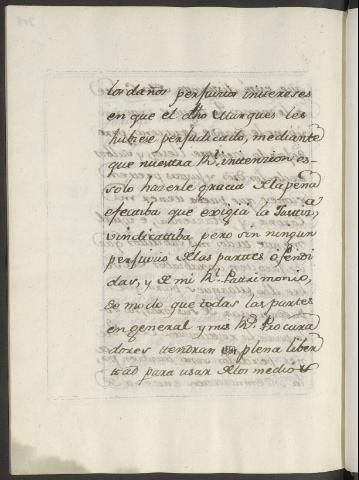 los daños perjuicios intereses
en que el dho Marques les
hubiese perjudicado, mediante
que nuestra Rl. intension es
solo haserle gracia de la pena
efectiba que exigia la Justicia
vindicatiba pero sin ningun
perjuicio de las partes ofendi
das, y de mi Rl. Patrimonio,
de modo que todas las partes
en general y mis Rs. Procura
dores tendran en plena liber
tad para usar de los medios